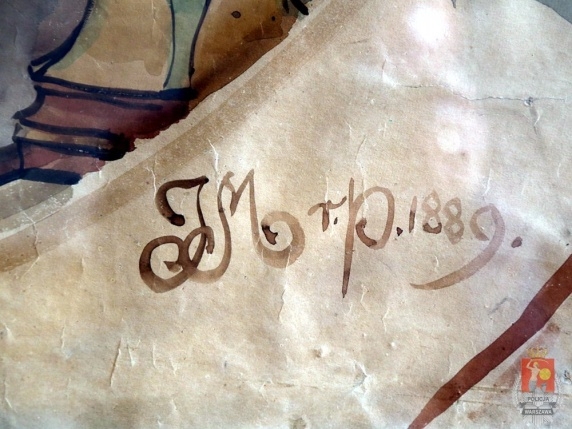 JM r. p. 1889.
POLICJA
WARSZAWA